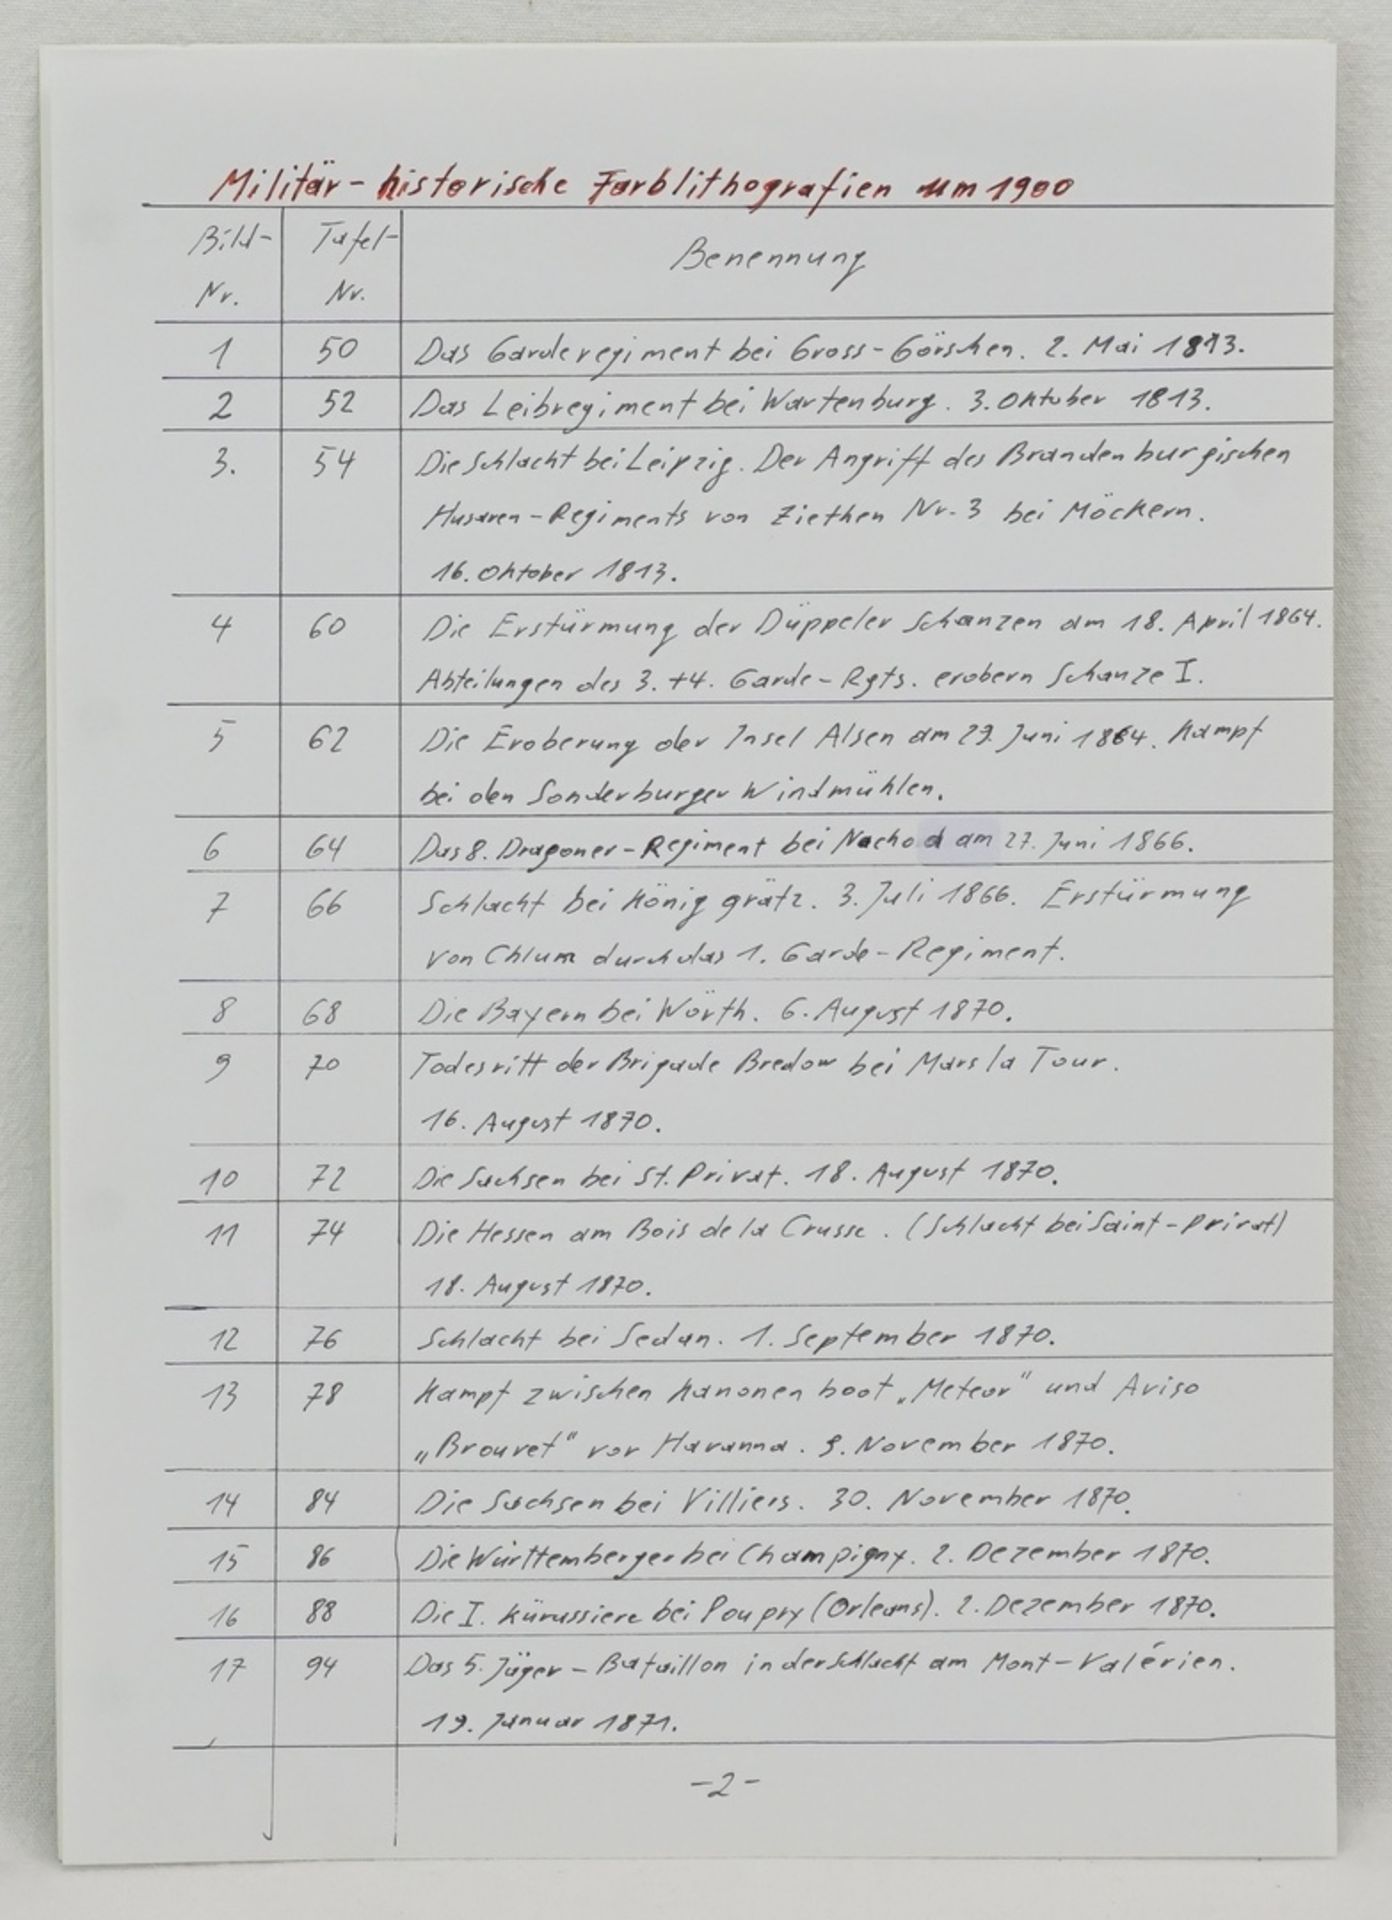 Militär-historische Farblithografien um 1900
Bild- Tafel- Benennung
Nr. Nr.
1 50 Das Garderegiment bei Gross-Görschen. 2. Mai 1813.
2 52 Das Leibregiment bei Wartenburg. 3. Oktober 1813.
3. 54 Die Schlacht bei Leipzig. Der Angriff des Brandenburgischen
Husaren-Regiments von Ziethen Nr. 3 bei Möckern.
16. Oktober 1813.
4 60 Die Erstürmung der Düppeler Schanzen am 18. April 1864.
Abteilungen des 3. +4. Garde-Rgts. erobern Schanze I.
5 62 Die Eroberung der Insel Alsen am 29. Juni 1864. Kampf
bei den Sonderburger Windmühlen.
6 64 Das 8. Dragoner-Regiment bei Nachod am 27. Juni 1866.
7 66 Schlacht bei Königgrätz. 3. Juli 1866. Erstürmung
von Chlum durch das 1. Garde-Regiment.
8 68 Die Bayern bei Wörth. 6. August 1870.
9 70 Todesritt der Brigade Bredow bei Mars la Tour.
16. August 1870.
10 72 Die Sachsen bei St. Privat. 18. August 1870.
11 74 Die Hessen am Bois de la Crusse. (Schlacht bei Saint-Privat)
18. August 1870.
12 76 Schlacht bei Sedan. 1. September 1870.
13 78 Kampf zwischen Kanonenboot „Meteor" und Aviso
„Brouvet" vor Havanna. 9. November 1870.
14 84 Die Sachsen bei Villiers. 30. November 1870.
15 86 Die Württemberger bei Champigny. 2. Dezember 1870.
16 88 Die I. Kürassiere bei Poupry (Orleans). 2. Dezember 1870.
17 94 Das 5. Jäger-Bataillon in der Schlacht am Mont-Valérien.
19. Januar 1871.
-2-